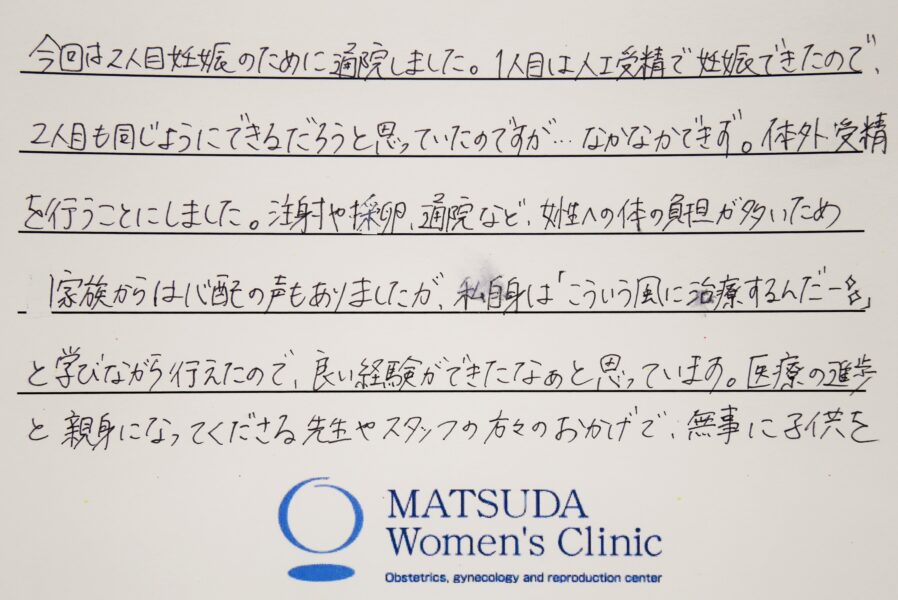 今回は2人目妊娠のために通院しました。1人目は人工受精で妊娠できたので、
2人目も同じようにできるだろうと思っていたのですが…なかなかできず。体外受精
を行うことにしました。注射や採卵、通院など、女性への体の負担が多いため
家族からは心配の声もありましたが、私自身は「こういう風に治療するんだー
と学びながら行えたので、良い経験ができたなぁと思っています。医療の進歩
と親身になってくださる先生やスタッフの方々のおかげで、無事に子供を
MATSUDA
Women's Clinic
Obstetrics, gynecology and reproduction center